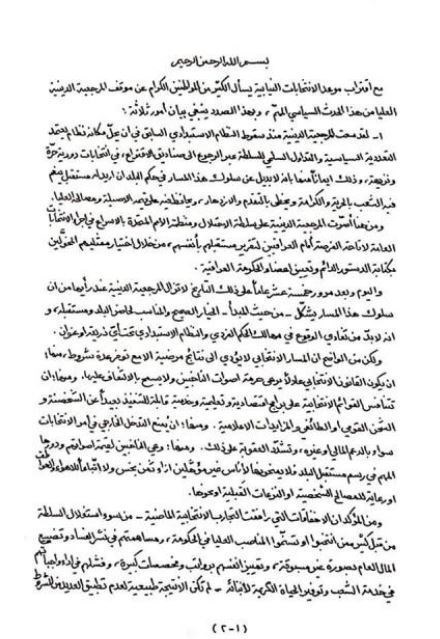 بسم الله الرحمن الرحيم
مع اقتراب موعد الانتخابات النيابية يسأل الكثير من المواطنين الكرام عن موقف المرجعية الدينية
العليا من هذا الحدث السياسي المهم، وبهذا الصدد ينبغي بيان أمور ثلاثة:
١- لقد سعت المرجعية الدينية منذ سقوط النظام الاستبدادي السابق في ان يحلّ مكانه نظام يعتمد
التعددية السياسية والتداول السلمي للسلطة عبر الرجوع الى صناديق الاقتراع، في انتخابات دورية حرّة
ونزيهة، وذلك ايماناً منها بانه لا بديل عن سلوك هذا المسار في حكم البلد إن اريد له مستقبل ينعم
فيه الشعب بالحرية والكرامة ويحظى بالتقدم والازدهار، ويحافظ فيه على قيمه الاصيلة ومصالحه العليا.
ومن هنا أصرّت المرجعية الدينية على سلطة الاحتلال ومنظمة الامم المتحدة بالاسراع في اجراء الانتخابات
العامة لاتاحة الفرصة أمام العراقيين لتقرير مستقبلهم بأنفسهم، من خلال اختيار ممثليهم المخوَّلين
بكتابة الدستور الدائم وتعيين اعضاء الحكومة العراقية.
واليوم وبعد مرور خمسة عشر عاماً على ذلك التاريخ لا تزال المرجعية الدينية عند رأيها من ان
سلوك هذا المسار يشكّل - من حيث المبدأ - الخيار الصحيح والمناسب لحاضر البلد ومستقبله، و
انه لا بدّ من تفادي الوقوع في مهالك الحكم الفردي والنظام الاستبدادي تحت أي ذريعة او عنوان.
ولكن من الواضح ان المسار الانتخابي لا يؤدي الى نتائج مرضية الا مع توفر عدة شروط، منها:
ان يكون القانون الانتخابي عادلاً يرعى حرمة اصوات الناخبين ولا يسمح بالالتفاف عليها. ومنها: ان
تتنافس القوائم الانتخابية على برامج اقتصادية وتعليمية وخدمية قابلة للتنفيذ بعيداً عن الشخصنة و
الشحن القومي او الطائفي والمزايدات الاعلامية. ومنها: ان يُمنع التدخل الخارجي في أمر الانتخابات
سواء بالدعم المالي او غيره، وتُشدّد العقوبة على ذلك. ومنها: وعي الناخبين لقيمة اصواتهم ودورها
المهم في رسم مستقبل البلد فلا يمنحونها لأناس غير مؤهلين ازاء ثمن بخس ولا اتّباعاً للاهواء والعواطف
او رعاية للمصالح الشخصية او النزعات القَبلية او نحوها.
ومن المؤكد ان الاخفاقات التي رافقت التجارب الانتخابية الماضية - من سوء استغلال السلطة
من قبل كثير ممن انتخبوا او تسنّموا المناصب العليا في الحكومة، ومساهمتهم في نشر الفساد وتضييع
المال العام بصورة غير مسبوقة، وتمييز أنفسهم برواتب ومخصصات كبيرة، وفشلهم في اداء واجباتهم
في خدمة الشعب وتوفير الحياة الكريمة لأبنائه - لم تكن الا نتيجة طبيعية لعدم تطبيق العديد من الشروط
(١-٢)